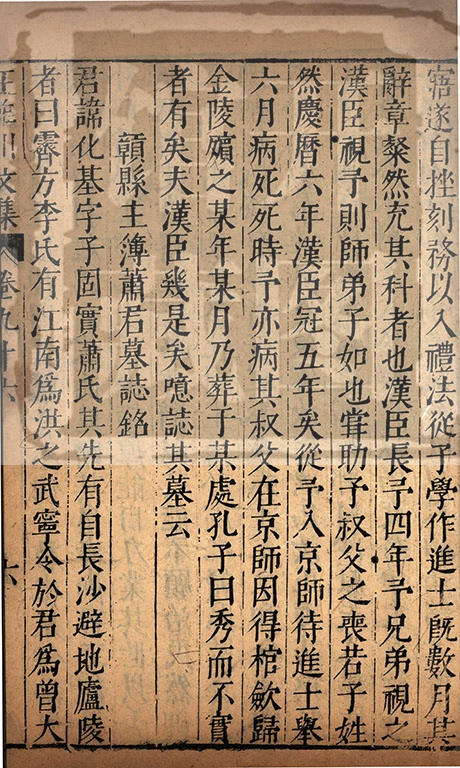 寤遂自挫刻務以入禮法從予學作進士既數月其
辭章粲然充其科者也漢臣長予四年予兄弟視之
漢臣視予則師弟子如也甞助予叔父之喪若子姓
然慶曆六年漢臣冠五年矣從予入京師待進士舉
六月病死死時予亦病其叔父在京師因得棺斂歸
金陵殯之某年某月乃葬于某處孔子曰秀而不實
者有矣夫漢臣幾是矣噫誌其墓云
贑縣主簿蕭君墓誌銘
君諱化基字子固實蕭氏其先有自長沙避地廬陵
者曰霽方李氏有江南為洪之武寧令於君為曾大
王臨川文集 卷九十六 六